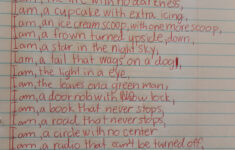 with no darkness,
I am, a cupcake with extra icing,
I am, an ice cream scoop, with one more scoop,
I am, a frown turned upside, down,
I am, a star in the night sky,
I am, a tail that wags on a dog,
I am, the light in a eye,
I am, the leaves on a green man,
I am, a door nob with now lock,
I am, a book that never stops,
I am, a road that never stops,
I am, a circle with no center
I am, a radio that can't be turned off,